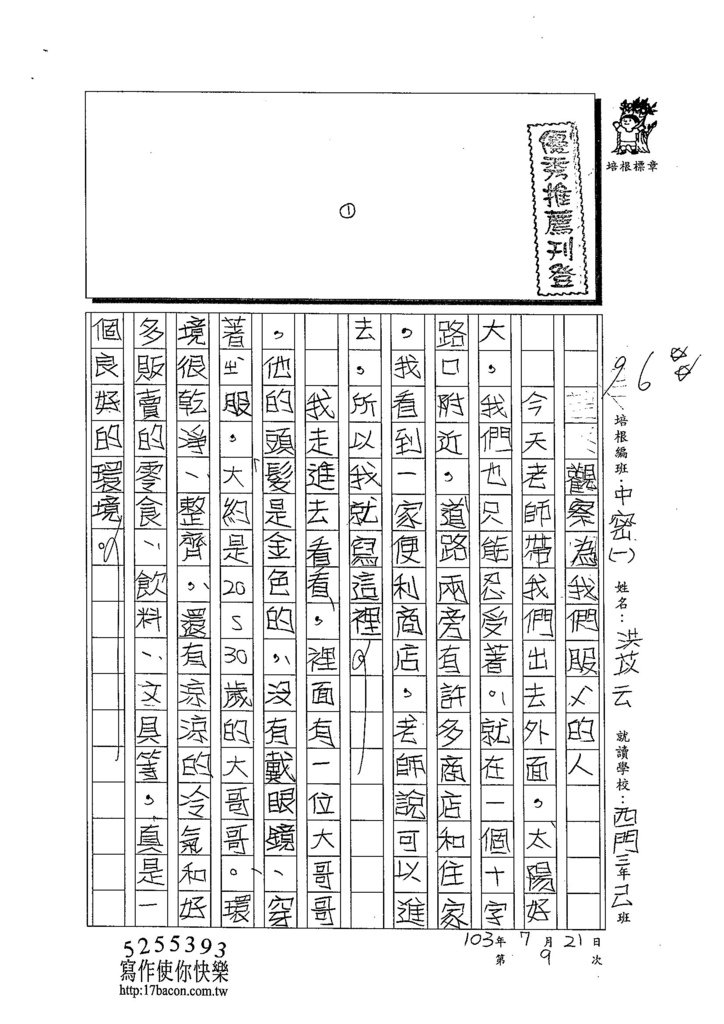 培根標章
優秀推薦刊登
①
96
培根編班：中密(一) 姓名：洪苡云 就讀學校：西門三年己班
觀察為我們服ㄨ的人
今天老師帶我們出去外面，太陽好
大，我們也只能忍受著，就在一個十字
路口附近，道路兩旁有許多商店和住家
，我看到一家便利商店，老師說可以進
去，所以我就寫這裡。
我走進去看看，裡面有一位大哥哥
，他的頭髮是金色的，沒有戴眼鏡、穿
著ㄓ服，大約是20S30歲的大哥哥。環
境很乾淨、整齊，還有涼涼的冷氣和好
多販賣的零食、飲料、文具等，真是一
個良好的環境。
103年7月21日
第9次
5255393
寫作使你快樂
http:17bacon.com.tw